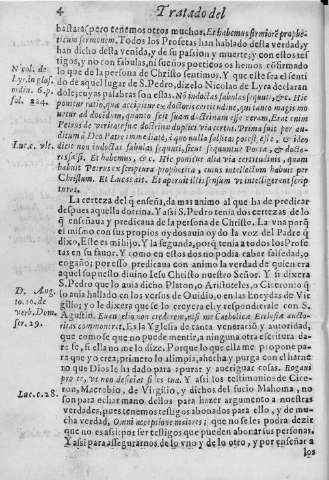 4 Tratado del
bastarà, pero tenemos otros muchos. Et habemus firmiorẽ prophe-
ticum sermonem. Todos los Profetas han hablado desta verdad, y
han dicho desta venida, y de su passion y muerte; y con estos tes-
tigos, y no con fabulas, ni sueños poeticos os hemos cõfirmado
lo que de la persona de Christo sentimos. Y que este sea el senti
Nicol. de
do de aquel lugar de S. Pedro, dizelo Nicolao de Lyra declaran
Lyr. in glos.
dole; cuyas palabras son estas. Nõ indoctas fabulas sequuti, &c. Hic
ordin. 6. p.
ponitur ratio, quæ accipitur ex doctoris certitudine, qui tanto magis mo
fol. 224.
uetur ad docendum, quanto scit suam doctrinam esse veram. Erat enim
Petrus de veritate suæ doctrinæ dupliciter certus. Prima fuit per au-
ditum à Deo Patre immediatè, à quo nulla falsitas potest esse, & ideo
Luc. c. vlt.
dicit non indoctas fabulas sequuti, sicut sequuntur Poetæ, & docto-
res falsi. Et habemus, &c. Hic ponitur alia via certitudinis, quam
habuit Petrus ex scriptura prophetica, cuius intellectum habuit per
Christum. Et Lucas ait. Et aperuit illis sensum vt intelligerent scrip
turas.
La certeza del q̃ enseña, da mas animo al que ha de predicar
despues aquella dotrina. Y assi S. Pedro tenia dos certezas de lo
q̃ enseñaua y predicaua de la persona de Christo. La vna porq̃
el mismo con sus propios oydos auia oydo la voz del Padre q̃
dixo, Este es mi hijo. Y la segunda, porq̃ tenia a todos los Profe
tas en su fauor. Y como en estos dos no podia caber falsedad, o
engaño; por esso predicaua con animo la verdad de quien era
aquel supuesto diuino Iesu Christo nuestro Señor. Y si dixera
S. Pedro que lo auia dicho Platon, o Aristoteles, o Ciceron; o q̃
D. Aug.
lo auia hallado en los versos de Ouidio, o en las Eneydas de Vir
to. 10. de
gilio; yo le dixera que se lo creyera el, y responderale con S.
verb. Dom.
Agustin. Euangelio non crederem, nisi me Catholicæ Ecclesiæ aucto-
ser. 29.
ritas commoneret. Es la Yglesia de tanta veneracio y autoridad,
que como se que no puede mentir, a ninguna otra escritura da-
re fe, si ella no me lo dize. Porque lo que ella me propone pa-
ra que yo crea, primero lo alimpia, ahecha y purga con el harne
ro que Dios le ha dado para apurar y aueriguar cosas. Rogaui
Luc. c. 28.
pro te, vt non deficiat fides tua. Y assi los testimonios de Cice-
ron, Macrobio, de Virgilio, y dichos del sucio Mahoma, no
son para echar mano dellos para hazer argumento a nuestras
verdades, pues tenemos testigos abonados para ello, y de mu-
cha verdad, Omni acceptione maiores; que no se les podra dezir
que no es assi: por ser testigos que pueden abonar sus personas.
Y assi para assegurarnos de lo vno y de lo otro, y por enseñar a
los